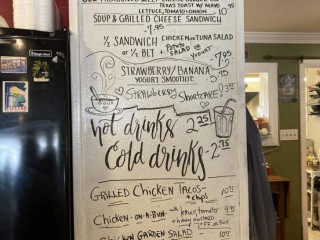 TEXAS TOAST W/ MAYO
LETTUCE, TOMATO + ONION 10.95
SOUP & GRILLED CHEESE SANDWICH
-7.95
1/2 SANDWICH CHICKEN OR TUNA SALAD
or 1/2 BLT + POTATO SALAD OR YOGURT -7.95
STRAWBERRY/BANANA
YOGURT SMOOTHIE
Strawberry Shortcake
hot drinks 2.25
Cold drinks -2.75
GRILLED CHICKEN TACOS-
+ chips
CHICKEN-ON-A-BUN- w/ lettuce, tomato
+ honey mustard
CHICKEN GARDEN SALAD